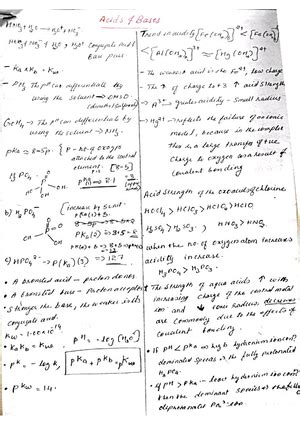 Acids & Bases
HNO3 + H2O → H3O+ + NO3-
conjugate Acid &
base pair.
- Ka x Kb = Kw
PH3 The pKa can differentiate by
using the solvent → DMSO
GeH4 → The pKa can differentiate by
using solvent → NH3.
pKa = 8-5p. { p - no of oxygen
attached to the central
element. } [8-5]
1) H3PO4 →
b) H2PO4-
[increase by 5 unit.
c) HPO4 2- → P(Ka)(3) ⇒ 12.7
• A Bronsted acid - proton donor
• A bronsted base - Proton acceptor
• Stronger the base, the weaker is its
conjugate acid.
Kw = 1.00 x 10-14
• Ka x Kb = Kw
• pK = -log K,
• pKw = 14.
pH = -log [H3O+]
pKa + pKb = pKw
Trend in acidity [Fe(OH2)6]2+ < [Fe(OH2)6]3+
< [Al(OH2)6]3+ ≈ [Hg(OH2)]2+
- The weakest acid is the Fe2+, low charge
- The ↑ of charge to +3 ↑ acid strength
- Al3+ → greater acidity - Small radius
- Hg2+ - reflects the failure of an ionic
model, because in the complex
there is a large transfer of +ve
charge to oxygen as a result of
covalent bonding
Acid Strength of the oxoacids of chlorine
HClO4 > HClO3 > HClO2 > HClO
H2SO4 > H2SO3, HNO3 > HNO2
when the no of oxygen atom increases
acidity increase.
H3PO4 > H3PO3.
• The Strength of aqua acids ↑ with
increasing charge of the central metal
ion and ↓ ionic radius,
are commonly due to the effects of
covalent bonding.
• If pH < pKa ⇒ high hydronium ion conc,
dominated species is the fully protonated
H3PO4.
• If pH > pKa - low hydronium ion conc,
then the dominant species is the fully
deprotonated PO4 3- ion.